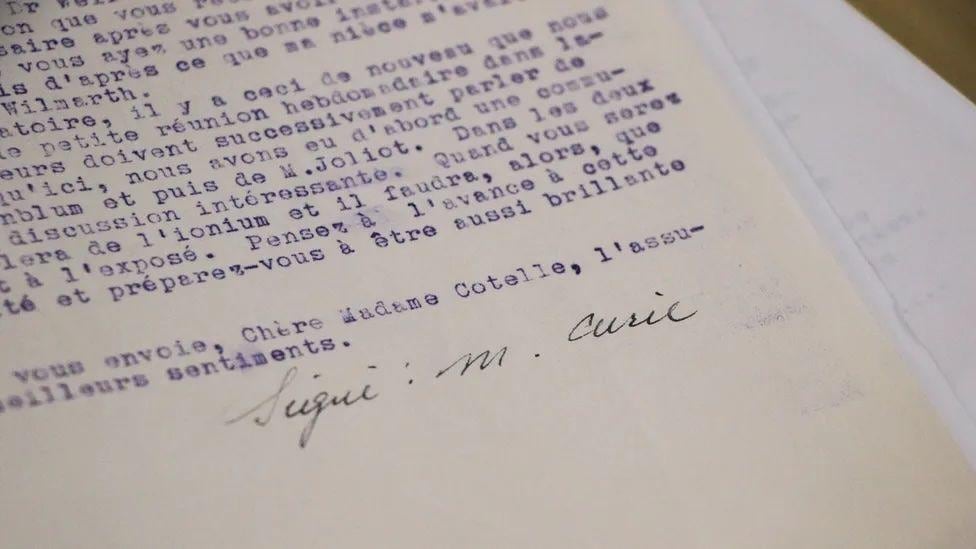 Dr Wei
on que vous re
saire après vous avoir
vous ayez une bonne insta
is d'après ce que ma nièce m'avait
Wilmarth.
atoire, il y a ceci de nouveau que nous
e petite réunion hebdomadaire dans la-
eurs doivent successivement parler de
qu'ici, nous avons eu d'abord une commu-
nblum et puis de M.Joliot. Dans les deux
discussion intéressante. Quand vous serez
lera de l'ionium et il faudra, alors, que
t à l'exposé. Pensez à l'avance à cette
té et préparez-vous à être aussi brillante
vous envoie, Chère Madame Cotelle, l'assu-
eilleurs sentiments.
Signé : M. Curie